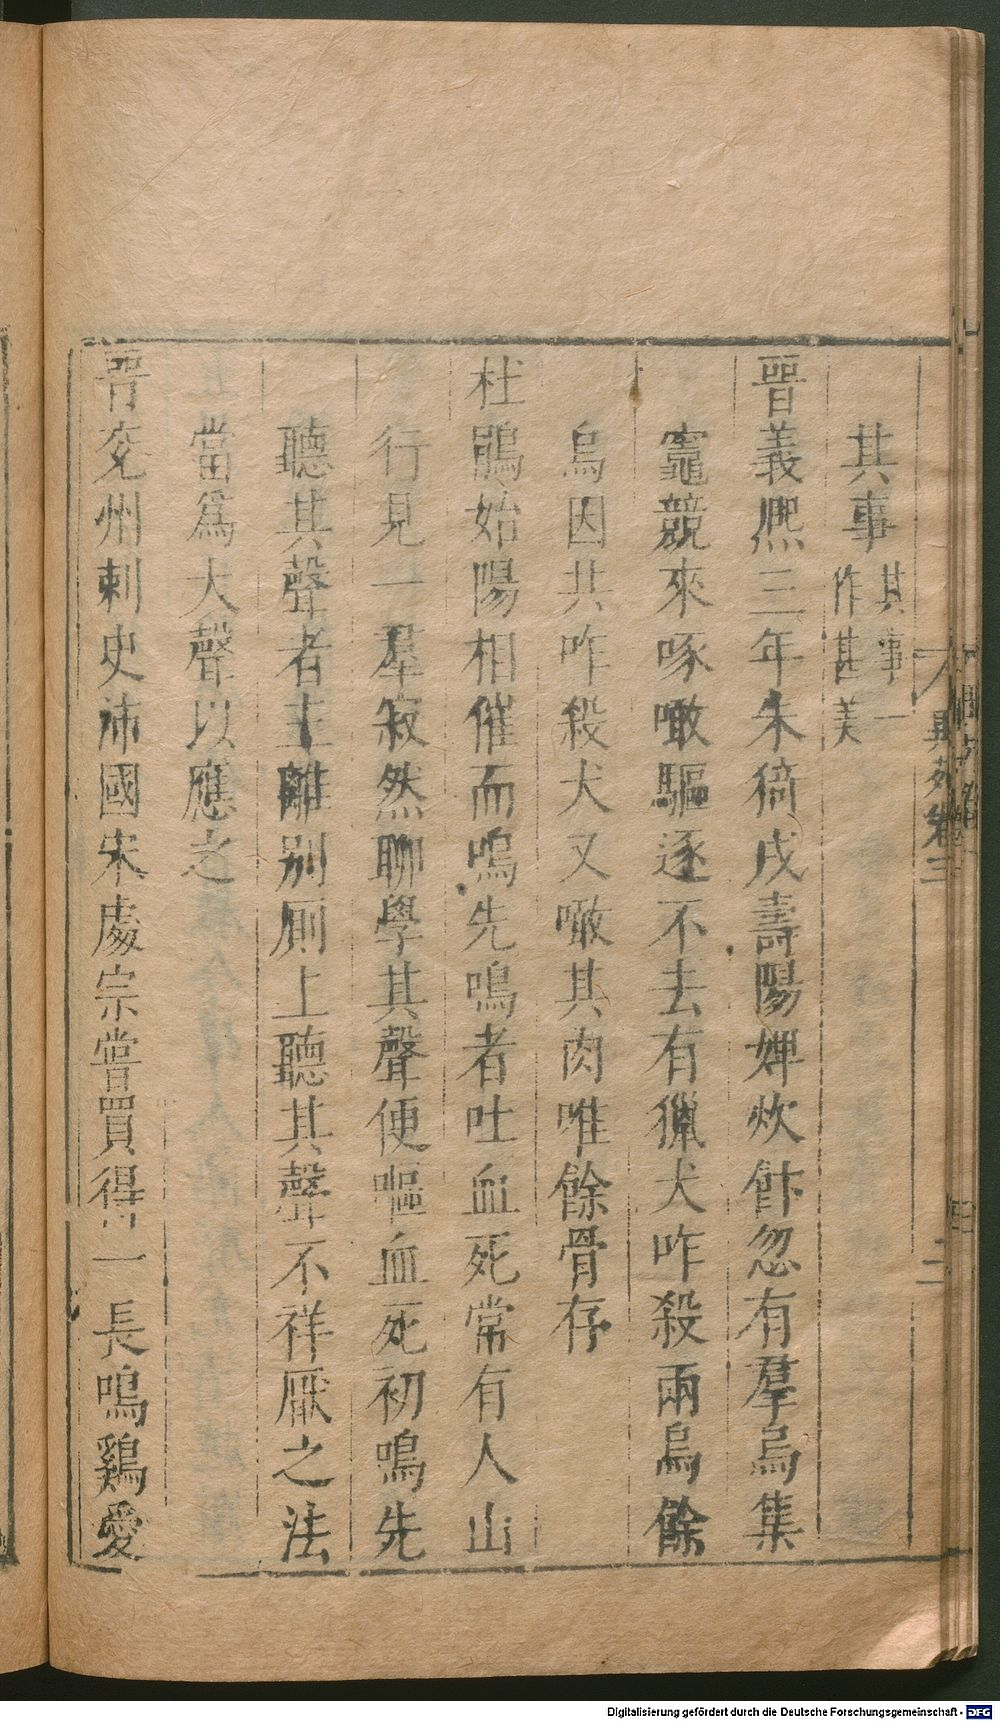 異苑卷三
二
其事其事一作甚美
晉義熙三年朱猗戍壽陽婢炊飰忽有羣烏集
竈競來啄噉驅逐不去有獵犬咋殺兩烏餘
烏因共咋殺犬又噉其肉唯餘骨存
杜鵑始陽相催而鳴先鳴者吐血死常有人山
行見一羣寂然聊學其聲便嘔血死初鳴先
聽其聲者主離別厠上聽其聲不祥厭之法
當爲大聲以應之
晉兗州刺史沛國宋處宗嘗買得一長鳴鷄愛
Digitalisierung gefördert durch die Deutsche Forschungsgemeinschaft - DFG